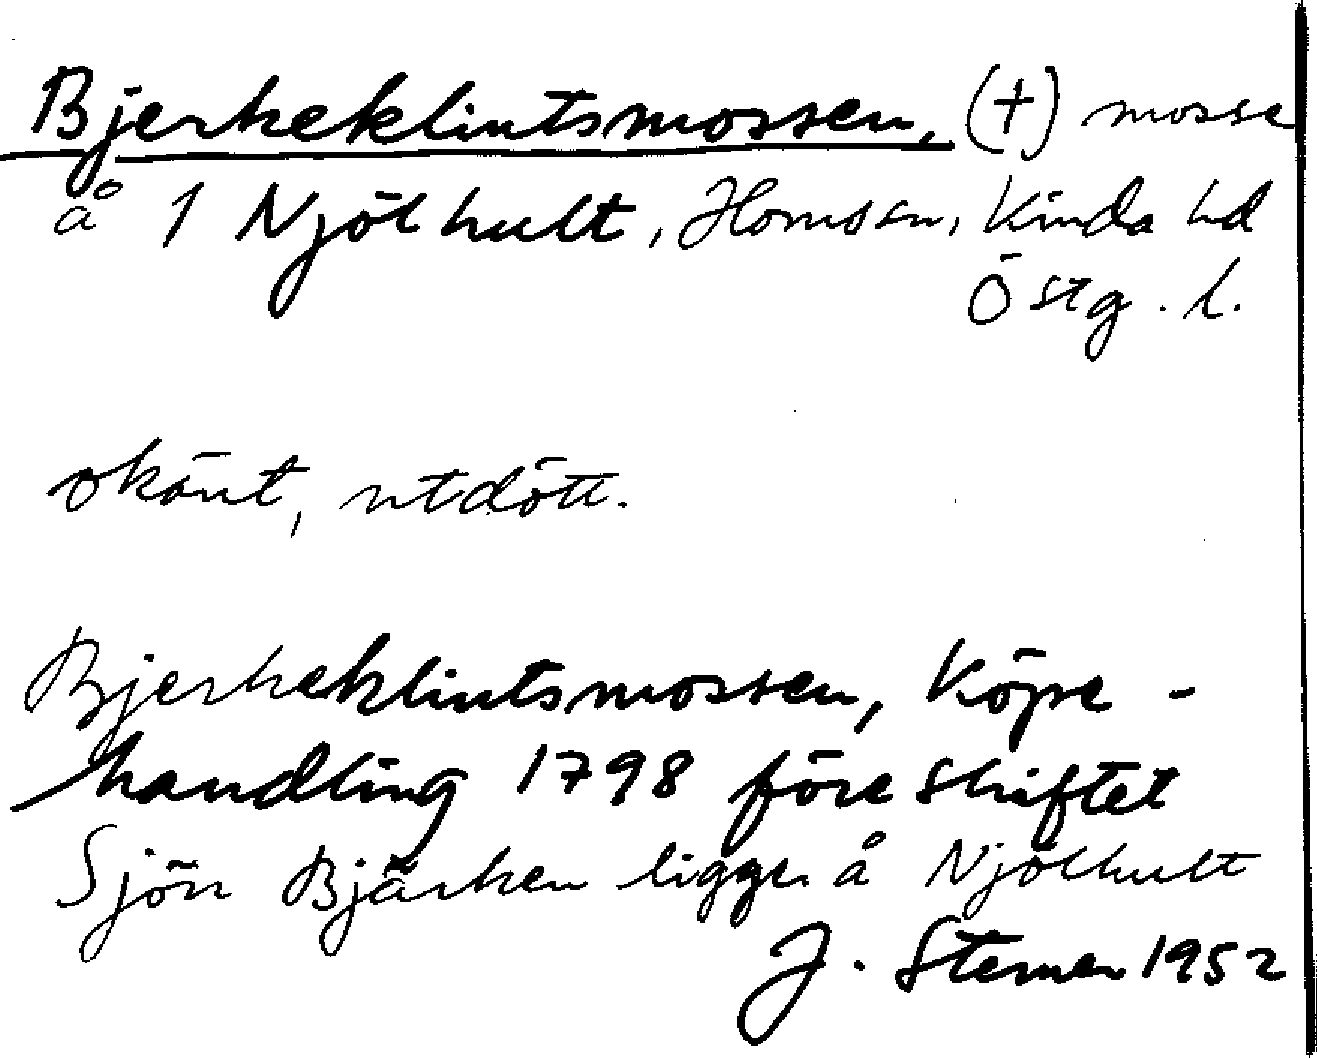 Bjerkeklintsmossen, (+) mosse
å 1 Njölhult, Horns sn, Kinda hd
Östg. l.
okänt, utdött.
Bjerkeklintsmossen, Köpe-
handling 1798 före skiftet
Sjön Bjärken ligger å Njölhult
J. Sterner 1952